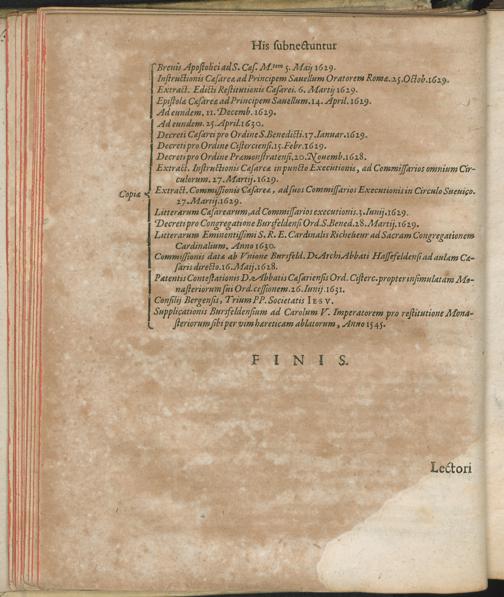 His subnectuntur
Brevis Apostolici ad S. Cæs. M.tem 5. Maij 1629.
Instructionis Cæsareæ ad Principem Sauellum Oratorem Romæ. 25. Octob. 1629.
Extract. Edicti Restitutionis Cæsarei. 6. Martij 1629.
Epistolæ Cæsareæ ad Principem Sauellum. 14. April. 1629.
Ad eundem. 11. Decemb. 1629.
Ad eundem. 25. April. 1630.
Decreti Cæsarei pro Ordine S. Benedicti. 17. Ianuar. 1629.
Decreti pro Ordine Cisterciensi. 15. Febr. 1629.
Decreti pro Ordine Præmonstratensi. 20. Nouemb. 1628.
Extract. Instructionis Cæsareæ in puncto Executionis, ad Commissarios omnium Cir-
culorum. 27. Martij. 1629.
Copiæ
Extract. Commissionis Cæsareæ, ad suos Commissarios Executionis in Circulo Sueuiço.
27. Martij. 1629.
Litterarum Cæsarearum, ad Commissarios executionis. 3. Iunij. 1629.
Decreti pro Congregatione Bursfeldensi Ord. S. Bened. 28. Martij. 1629.
Litterarum Eminentissimi S. R. E. Cardinalis Richelieur ad Sacram Congregationem
Cardinalium. Anno 1630.
Commissionis data ab Vnione Bursfeld. D. Archi Abbati Hassefeldensi ad aulam Cæ-
saris directo. 16. Maij. 1628.
Patentis Contestationis D. æ Abbatis Cæsariensis Ord. Cisterc. propter insimulatam Mo-
nasteriorum sui Ord. cessionem. 26. Iunij. 1631.
Consilij Bergensis, Trium PP. Societatis IESV.
Supplicationis Bursfeldensium ad Carolum V. Imperatorem pro restitutione Mona-
steriorum sibi per vim hæreticam ablatorum, Anno 1545.
FINIS.
Lectori